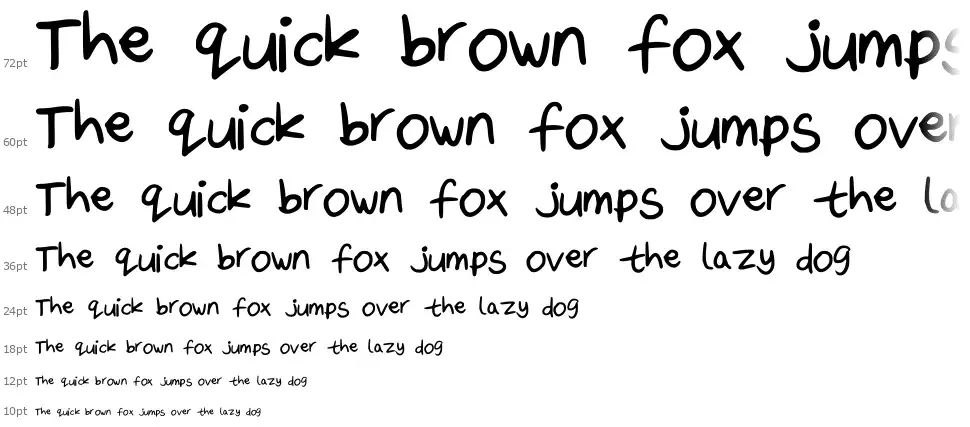 72pt The quick brown fox jumps
60pt The quick brown fox jumps over
48pt The quick brown fox jumps over the la
36pt The quick brown fox jumps over the lazy dog
24pt The quick brown fox jumps over the lazy dog
18pt The quick brown fox jumps over the lazy dog
12pt The quick brown fox jumps over the lazy dog
10pt The quick brown fox jumps over the lazy dog